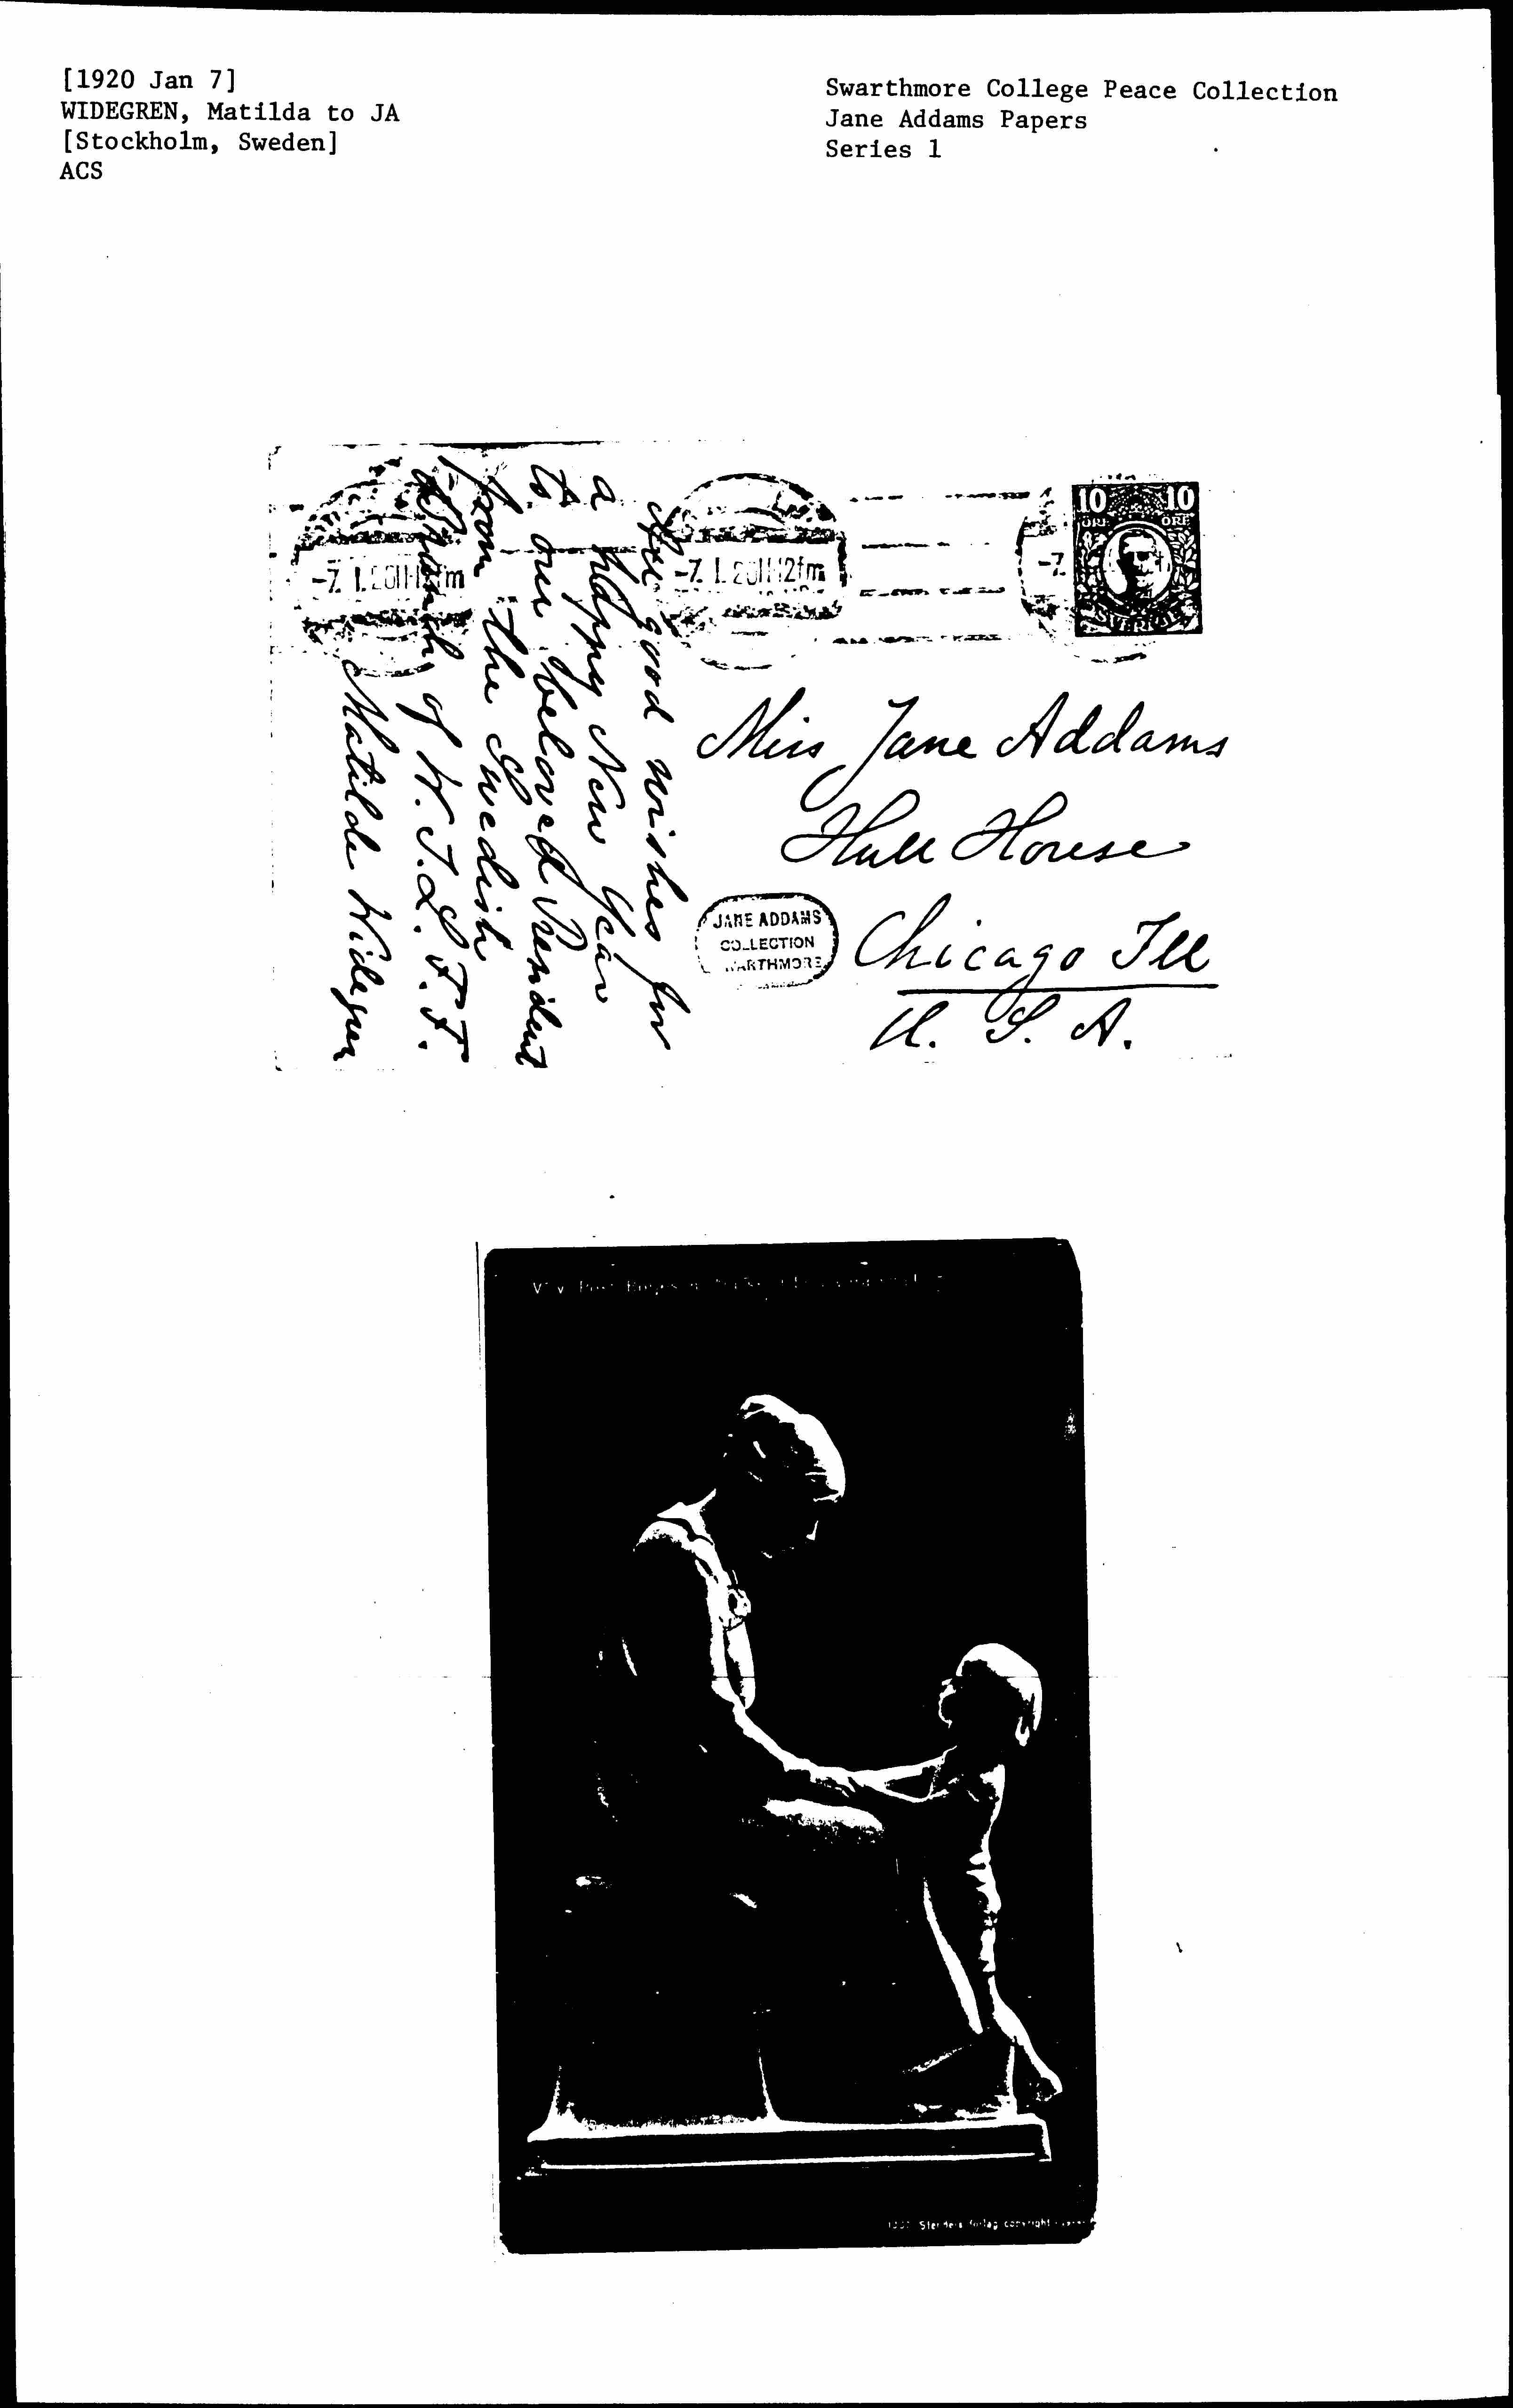 [1920 Jan 7]
WIDEGREN, Matilda to JA
[Stockholm, Sweden]
ACS
Swarthmore College Peace Collection
Jane Addams Papers
Series 1
good wishes for
a happy New Year
to our beloved President
from the Swedish
of W.I.L.P.F.
Matilda Widegren
-7.1.20 11-12 fm
-7.1.20 11-12 fm
-7.
10 10
ÖRE ÖRE
SVERIGE
Miss Jane Addams
Hull House
Chicago Ill
U. S. A.
JANE ADDAMS
COLLECTION
SWARTHMORE
förlag copyright